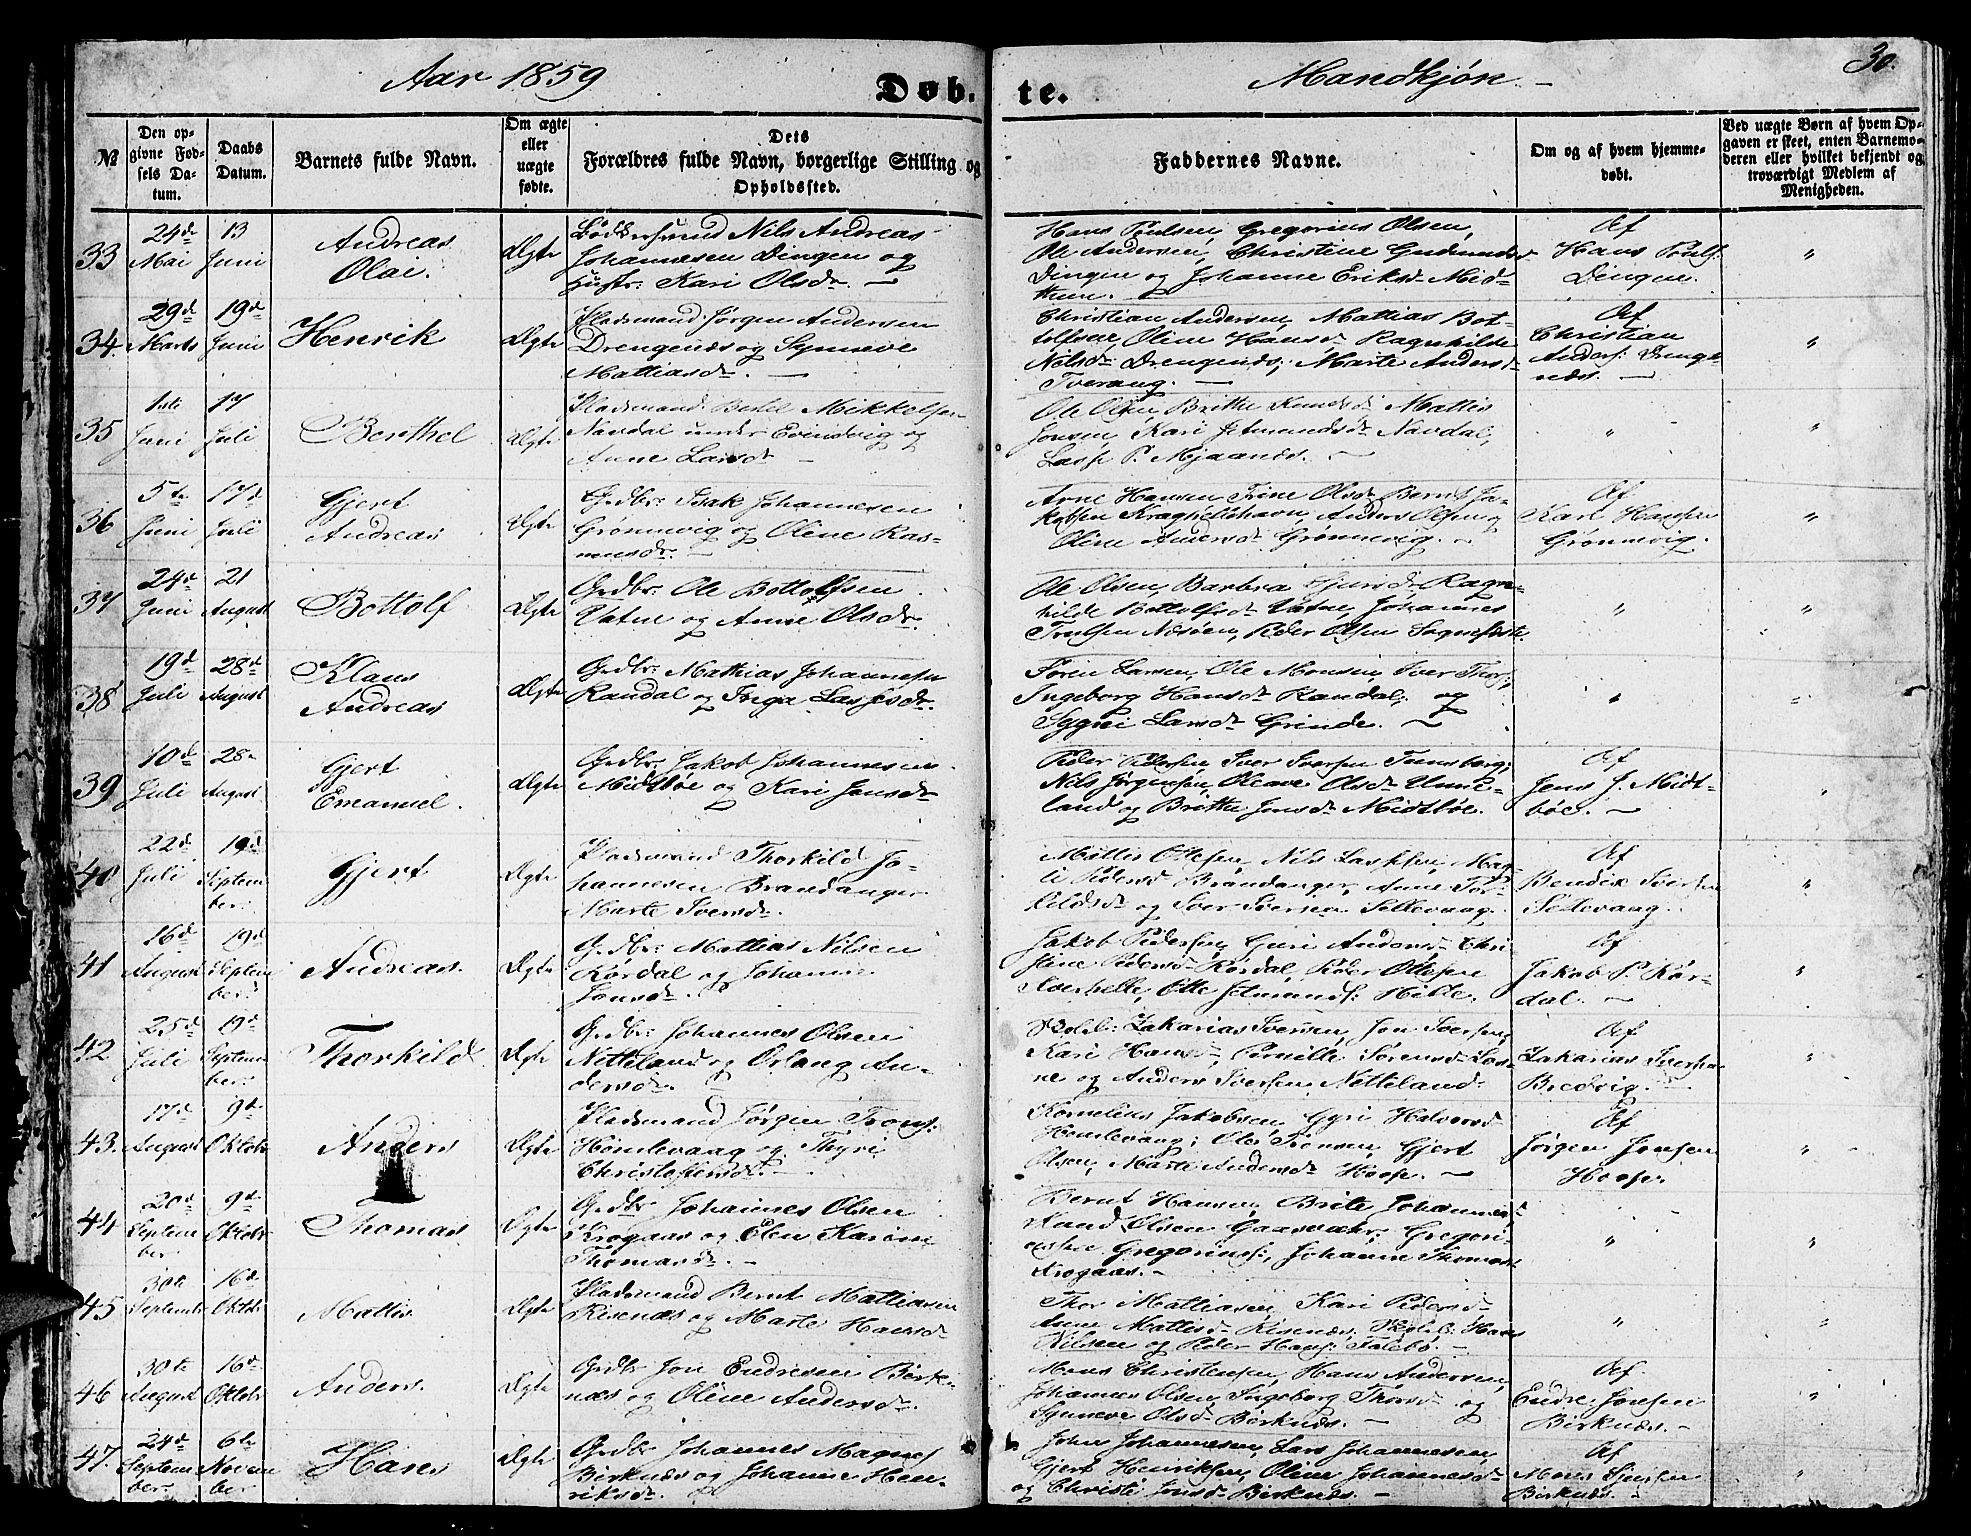 Aar 1859
Døb-
te.
Mandkjøn
30.
№
Den op-
givne Fød-
sels Da-
tum.
Daabs
Datum.
Barnets fulde Navn.
Om ægte
eller
uægte
fødte.
Dets
Forældres fulde Navn, borgerlige Stilling og
Opholdssted.
Faddernes Navne.
Om og af hvem hjemme-
døbt.
Ved uægte Børn af hvem Op-
gaven er skeet, enten Barnemo-
deren eller hvilket bekjendt og
troværdigt Medlem af
Menigheden.
33
24de
Mai
13
Juni
Andreas
Olai.
Ægte
Nils Andreas
Johannesen Dingen og
Hustr: Kari Olsdr.
Hans Poulsen, Gregorius Olsen,
Ole Andersen, Christine Gudmundsd
Dingen og Johanne Eriksd Mid-
thun.
Af
Hans Pouls:
Dingen.
34.
29de
Marts
19de
Juni
Henrik
Ægte
Pladsmand Jørgen Andersen
Drengenæs og Synneve
Mattiasdr.
Christian Andersen, Mathias Bot-
tolfsen, Oline Hansdr Ragnhilde
Nelsdr Drengenæs, Marte Andersd
Tverang.
Af
Christian
Anders: Drenge-
næs.
35
1ste
Juni
17
Juli
Berthel
Ægte
Pladsmand: Bertel Mikkelsen
Navdal under Evindvig og
Anne Larsdr
Ole Olsen, Britthe Knudsd Mattis
Jonsen, Kari Navdal,
Lasse P. Mjaanæs.
36
5te
Juni
17de
Juli
Gjert
Andreas
Ægte
Grdbr. Isak Johannesen
Grønnevig og Oline Ras-
musdr.
Arne Hansen, Trine Olsd Bernt Ja-
kobsen Kraghellehavn, Anders Olsen og
Oline Andersdr Grønnevig.
Af
Karl Hansen
Grønnevig.
37
24de
Juni
21
August
Bottolf
Ægte
Grdbr: Ole Bottolfsen
Vatne og Anne Olsdr.
Ole Olsen, Barbra Ragn-
hilde Bottolfsdr Vatne, Johannes
Trulsen Næsøen, Peder Olsen Sognefæste.
38
19de
Juli
28de
August
Klaus
Andreas
Ægte
Grdbr: Mathias Johannesen
Randal og Inga Lassesdr.
Søren Larsen, Ole Monsen, Iver Thors:
Ingeborg Hansdr Randal, og
Sygni Larsdr Grinde.
39
10de
Juli
28de
August
Gjert
Emanuel.
Ægte
Grdbr: Jakob Johannesen
Midtbøe og Kari Jonsdr
Peder Pedersen Iver Iversen
Nils Jørgensen, Oleane Olsdr Unne-
land og Britthe Jonsdr Midtbøe.
Af
Jens J. Midt-
bøe.
40
22de
Juli
19de
Septem
ber:
Gjert
Ægte
Pladsmand Thorkild Jo-
hannesen Brandanger
Marte Iversdr.
Mattis Ottesen, Nils Lassesen, Mag-
li Pedersd Brandanger, Anne Tor-
kildsdr og Iver Iversen Sellevaag.
Af
Bendix Iversen
Sellevaag.
41
16de
August
19de
Septem
ber.
Andreas.
Ægte
Grdbr: Mattias Nilsen
Kørdal og Johanne
Jonsdr.
Jakob Pedersen, Guri Andersd Chri-
stine Pedersd Kørdal, Peder Ottesen
Hille.
Af
Jakob P. Kør-
dal.
42
25de
Juli
19de
Septem
ber.
Thorkild
Ægte
Grdbr: Johannes Olsen
Netteland og Orlaug An-
dersdr.
Skolel: Zakarias Iversen, Jon Iversen
Kari Hansdr, Pernille Sørensdr
og Anders Iversen Netteland.
Af
Zakarias Iversen
Bredvig.
43.
17de
August
9de
Oktobr
Anders
Ægte
Pladsmand Jørgen
Homlevaag og Thyri
Kornelius Jakobsen, Gyri Halvorsd
Homlevaag; Ole Gjert
Olsen, Marte Andersdr Hoope.
Af
Jørgen Jonsen
Hoope.
44
20de
Septem
ber
9de
Oktobr
Thomas
Ægte
Grdbr Johannes Olsen
Krogaas og Elen Karine
Thomasdr.
Bernt Hansen, Brite Johannes
Knud Olsen Gaasvær: Gregori-
Gregorius:, Johanne Thomasd
Krogaas.
45
30te
Septembr
16de
Oktobr
Mattis
Ægte
Pladsmand Bernt Mattiasen
Risenæs og Marte Hansdr
Thor Mattiasen, Kari Pedersd
Anne Mattisdr Risenæs: Skolel: Hans
Nilsen og Peder Hans:
46
30te
August
16de
Oktobr
Anders.
Ægte
Grdbr Jon Endresen Birke-
næs og Oline Andersdr.
Mons Christensen, Hans Andersen,
Johannes Olsen, Ingeborg Thorsdr og
Synneve Olsdr Birknæs.
Af
Endre Jonsen
Birknæs.
47.
24de
Septem
ber.
6te
Novem
ber
Hans
Ægte
Grdbr Johannes Magnes
Birknæs og Johanne Hen-
riksdr.
John Johannesen, Lars Johannesen,
Gjert Henriksen, Oline Johannesd
og Christi Jonsdr Birknæs.
Af
Mons
Birknæs.